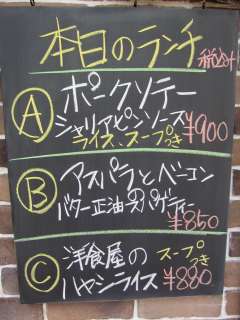 本日のランチ
税込み
Ⓐ ポークソテー
シャリアピンソース
ライス、スープつき ¥900
Ⓑ アスパラとベーコン
バター正油スパゲティー
¥850
Ⓒ 洋食屋の スープつき
ハヤシライス ¥880